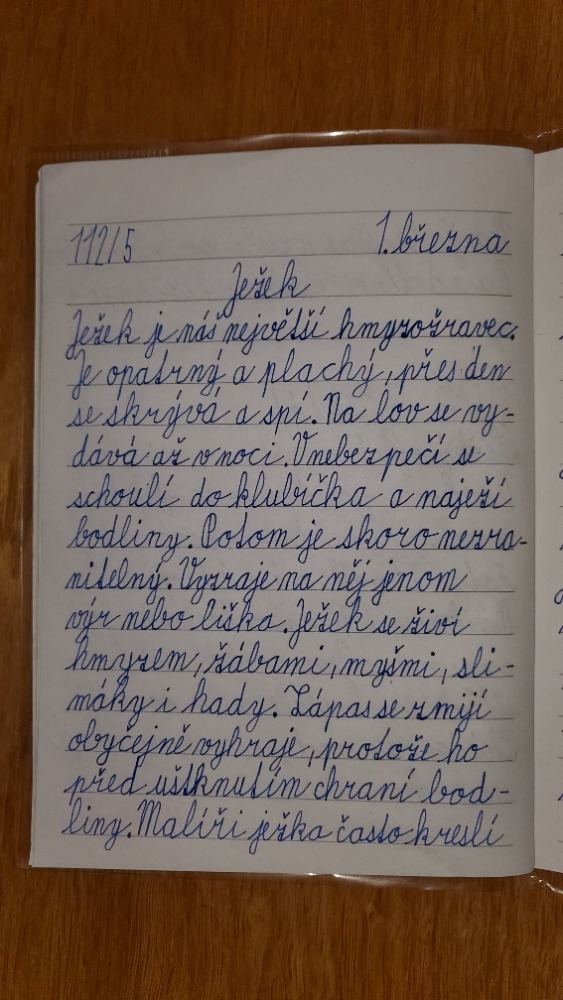 112/5 1. března
Ježek
Ježek je náš největší hmyzožravec.
Je opatrný a plachý, přes den
se skrývá a spí. Na lov se vy-
dává až v noci. V nebezpečí se
schoulí do klubíčka a naježí
bodliny. Potom je skoro nezra-
nitelný. Vyzraje na něj jenom
výr nebo liška. Ježek se živí
hmyzem, žábami, myšmi, sli-
máky i hady. Zápas se zmijí
obyčejně vyhraje, protože ho
před uštknutím chraní bod-
liny. Malíři ježka často kreslí